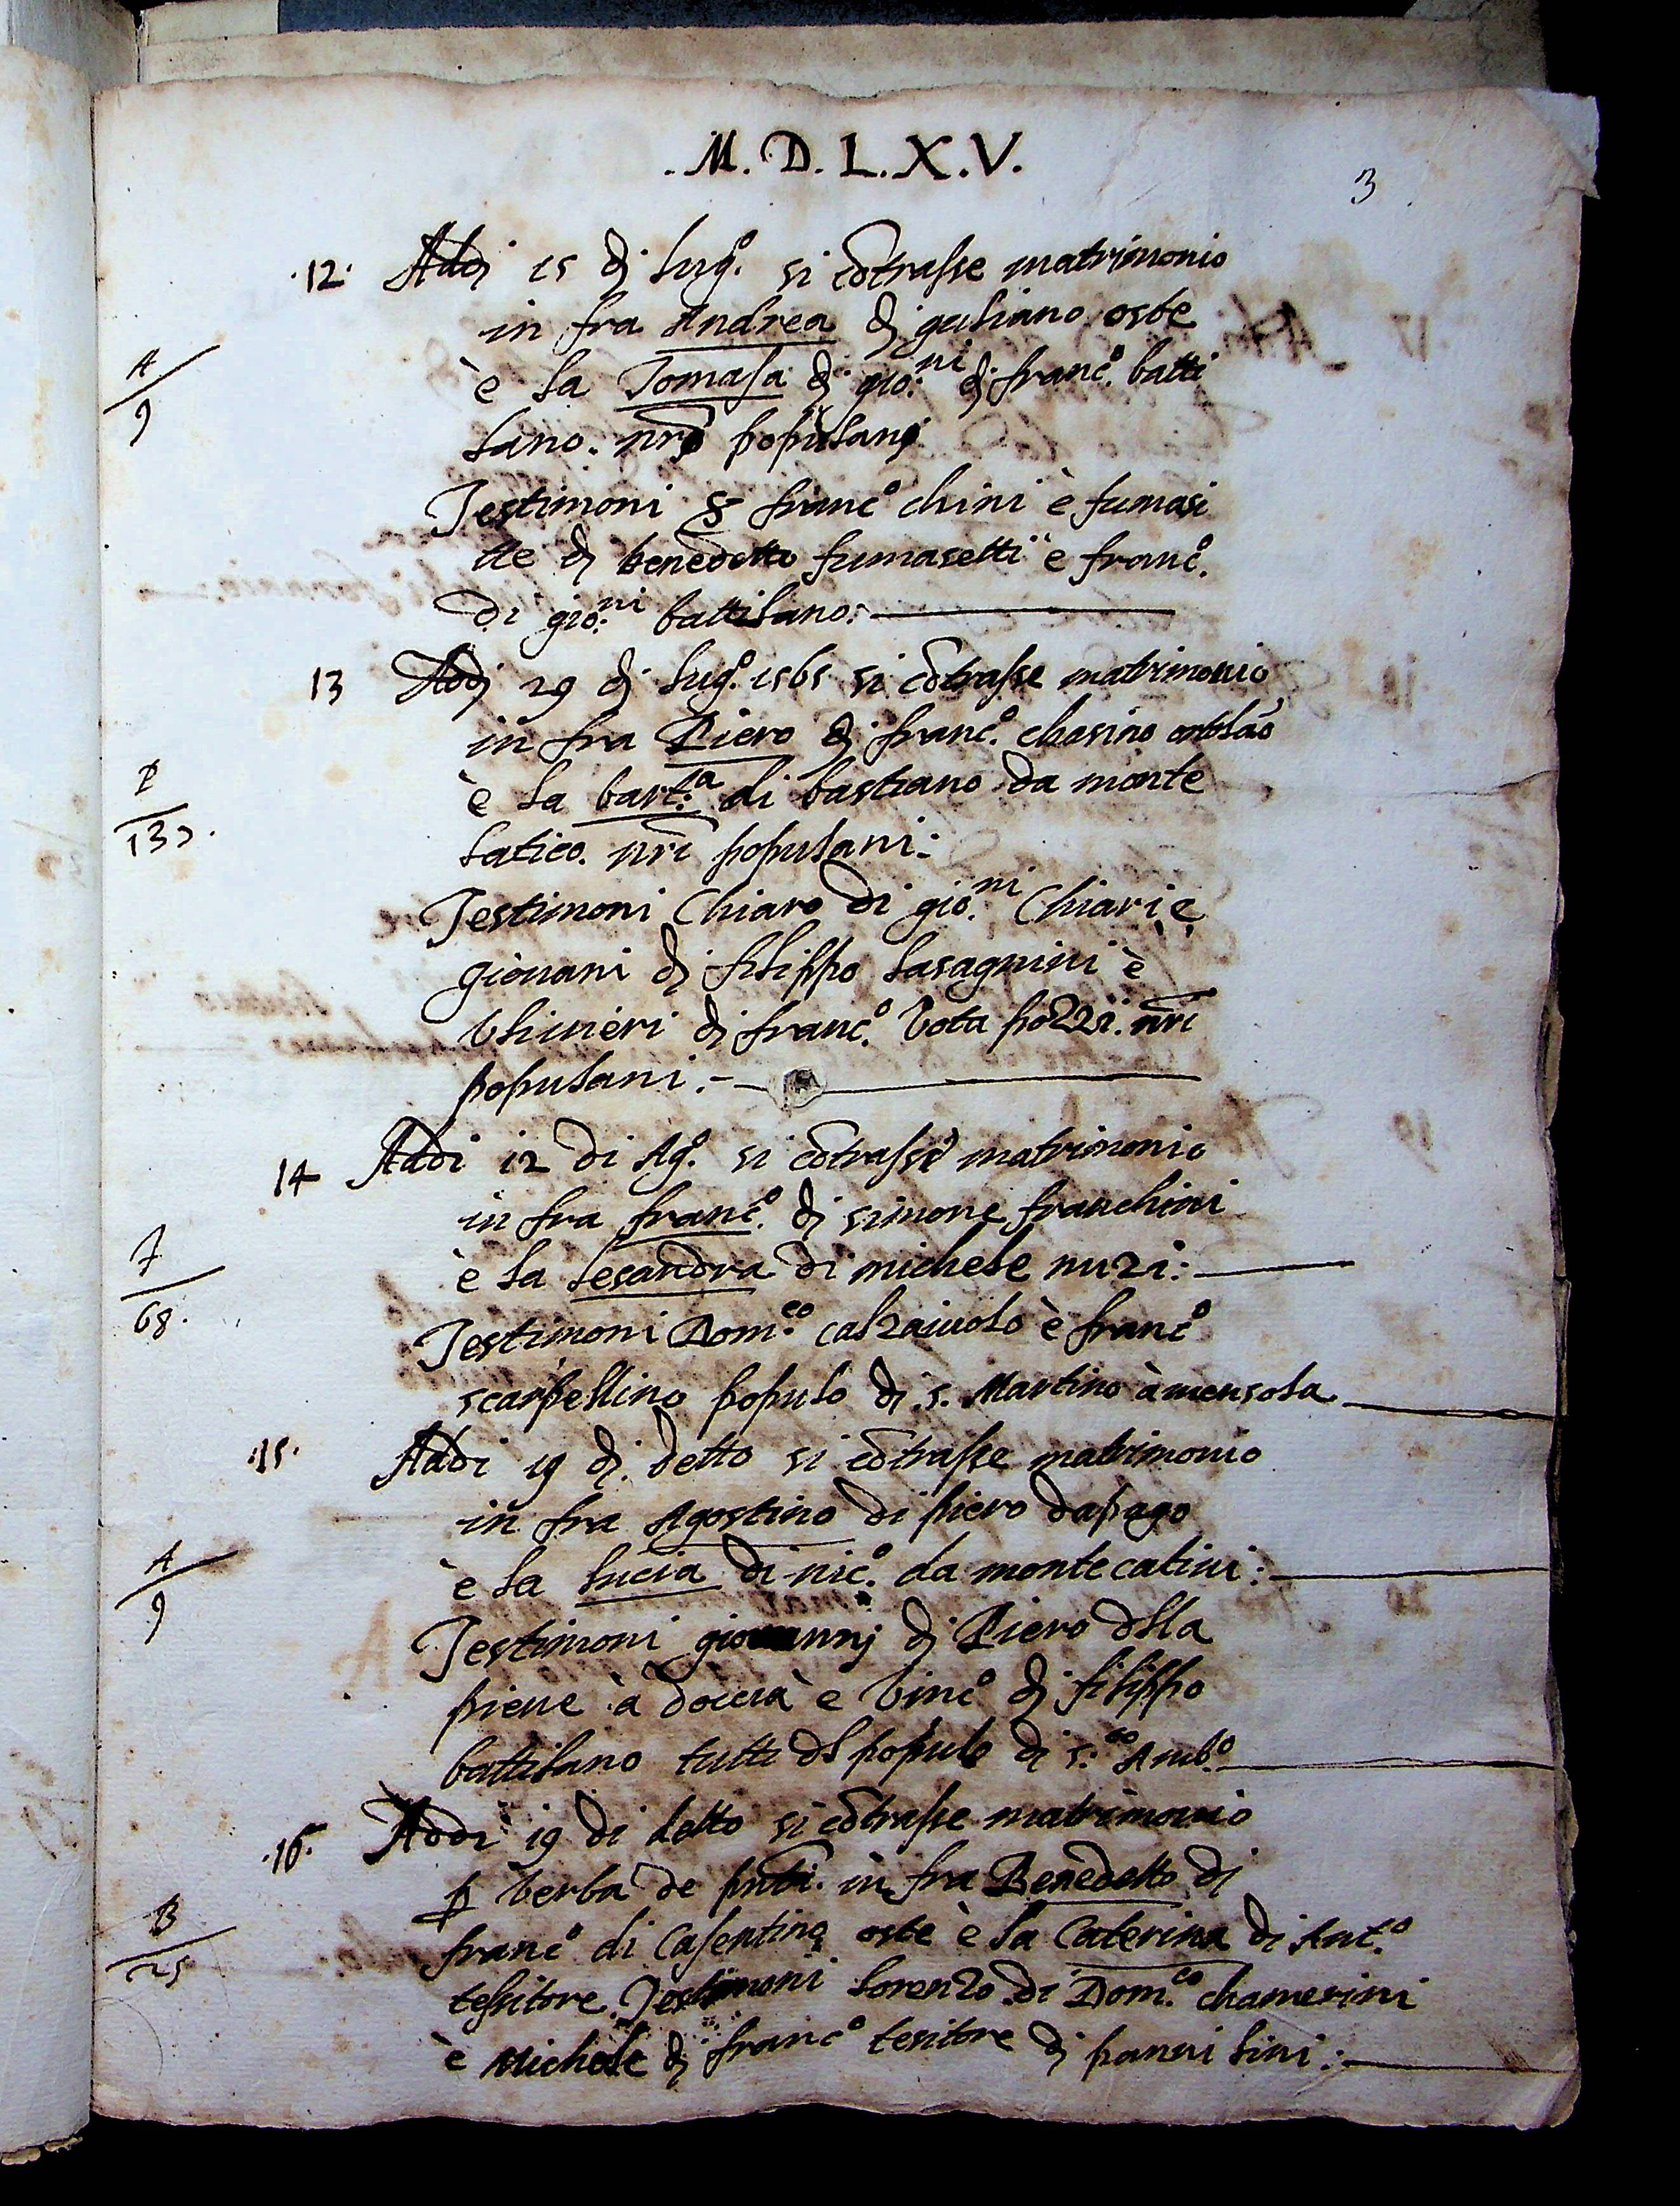 .M.D.L.X.V.
3
.12. Addj 15 dj lug.º si cōtrasse matrimonio
in fra Andrea dj guliano oste
A
9
è la Tomasa dj gio:ni dj franc.º batti
lano. nrj populanj
Testimoni franc.º chini è fumasi
dj benedetto fumasetti e franc.º
di gio:ni battilano:
13 Addj 29 dj lug.º 1565 si cōtrasse matrimonio
in fra Piero dj franc.º chasino
P
135.
è la bart:a di bastiano da monte
latico. nri populani:
Testimoni Chiaro di gio.ni Chiari e
giovani dj filippo lasagnini è
Ulivieri dj franc.º Vota pozzi. nri
populani:-
14 Addi 12 di Ag.º si cōtrasse matrimonio
in fra franc.º dj simone franchini
F
68.
è la lesandra di michele nuzi:
Testimoni Dom.co calzaiuolo è franc.º
scarpellino populo di .s. Martino à mensola
.15. Addi 19 dj detto si cōtrasse matrimonio
in fra Agostino di piero dapago
A
9
è la lucia di nic.º da montecatini:
Testimoni giovannj dj Piero dlla
pieve à doccia e Vinc.º dj filippo
battilano tutti dl populo di s.to Amb.º
.16. Addi 19 di detto si cōtrasse matrimonio
p verba de pnti. in fra Benedetto di
B
25
franc.º di Casentino oste è la Caterina di Ant.º
tessitore. Testimoni lorenzo di Dom.co chamerini
è Michele dj franc.º tesitore dj panni lini: